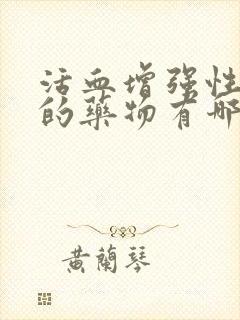 活血增强性
的藥物有哪
黄蘭琴